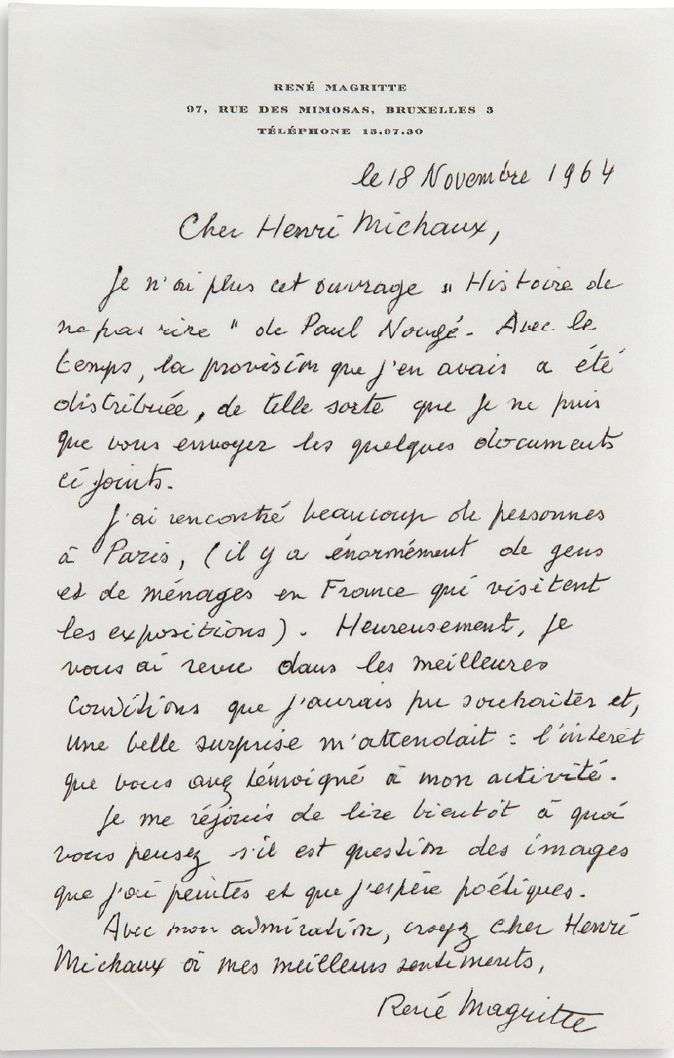 RENÉ MAGRITTE
97, RUE DES MIMOSAS, BRUXELLES 3
TÉLÉPHONE 15.07.30
le 18 Novembre 1964
Cher Henri Michaux,
Je n'ai plus cet ouvrage " Histoire de
ne pas rire " de Paul Nougé. Avec le
temps, la provision que j'en avais a été
distribuée, de telle sorte que je ne puis
que vous envoyer les quelques documents
ci joints.
J'ai rencontré beaucoup de personnes
à Paris, (il y a énormément de gens
et de ménages en France qui visitent
les expositions). Heureusement, je
vous ai revu dans les meilleures
conditions que j'aurais pu souhaiter et,
une belle surprise m'attendait : l'intérêt
que vous avez témoigné à mon activité.
Je me réjouis de lire bientôt à quoi
vous pensez s'il est question des images
que j'ai peintes et que j'espère poétiques.
Avec mon admiration, croyez cher Henri
Michaux à mes meilleurs sentiments,
René Magritte